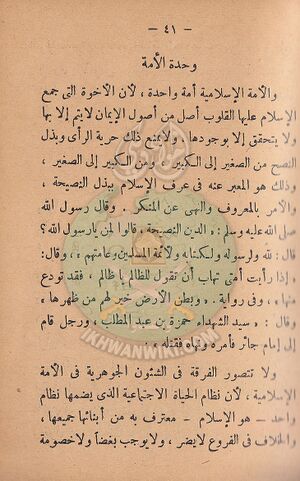 — ٤١ —
وحدة الأمة
والأمة الإسلامية أمة واحدة ، لأن الأخوة التى جمع
الإسلام عليها القلوب أصل من أصول الإيمان لا يتم إلا بها
ولا يتحقق إلا بوجودها . ولا يمنع ذلك حرية الرأى وبذل
النصح من الصغير إلى الكبير ، ومن الكبير إلى الصغير ،
وذلك هو المعبر عنه فى عرف الإسلام ببذل النصيحة ،
والأمر بالمعروف والنهى عن المنكر . وقال رسول الله
صلى الله عليه وسلم : « الدين النصيحة ، قالوا لمن يا رسول الله ؟
قال : لله ولرسوله ولكتابه ولأئمة المسلمين وعامتهم » ، وقال :
« إذا رأيت أمتى تهاب أن تقول للظالم يا ظالم ، فقد تودع
منها » ، وفى رواية . « وبطن الأرض خير لهم من ظهرها » ،
وقال : « سيد الشهداء حمزة بن عبد المطلب ، ورجل قام
إلى إمام جائر فأمره ونهاه فقتله » .
ولا تتصور الفرقة فى الشئون الجوهرية فى الأمة
الإسلامية ، لأن نظام الحياة الاجتماعية الذى يضمها نظام
واحد — هو الإسلام — معترف به من أبنائها جميعها ،
والخلاف فى الفروع لا يضر ، ولا يوجب بغضاً ولا خصومة
IKHWANWIKI.COM